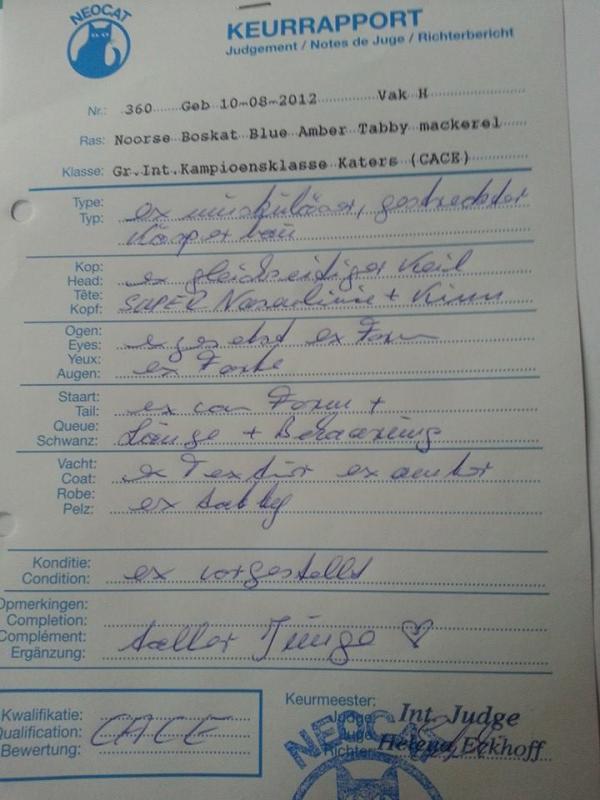 NEOCAT
KEURRAPPORT
Judgement / Notes de Juge / Richterbericht
Nr.: 360 Geb 10-08-2012 Vak H
Ras: Noorse Boskat Blue Amber Tabby mackerel
Klasse: Gr.Int.Kampioensklasse Katers (CACE)
Type: ex muskulöser, gestreckter
Typ: Körperbau
Kop:
Head: ex gleichseitiger Keil
Tête:
Kopf: SUPER Nasenlinie + Kinn
Ogen:
Eyes: ex gesetzt ex Form
Yeux:
Augen: ex Farbe
Staart:
Tail: ex an Form +
Queue:
Schwanz: Länge + Behaarung
Vacht:
Coat: ex Textur ex amber
Robe:
Pelz: ex tabby
Konditie:
Condition: ex vorgestellt
Opmerkingen:
Completion:
Complément:
Ergänzung: toller Junge ♡
Kwalifikatie:
Qualification: CACE
Bewertung:
Keurmeester:
Judge: Int. Judge
Juge
Richter Helena Eckhoff
NEOCAT